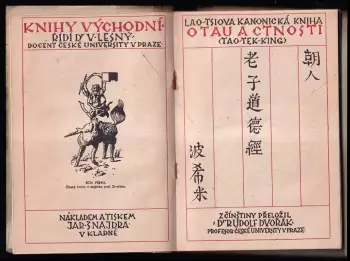 KNIHY VÝCHODNÍ·
ŘÍDÍ Dᴿ V· LESNÝ·
DOCENT ČESKÉ UNIVERSITY V PRAZE·
NÁKLADEM A TISKEM
JAR·ŠNAJDRA
V KLADNĚ
LAO-TSIOVA KANONICKÁ KNIHA
O TAU A CTNOSTI
(TAO-TEK-KING)
朝人
老子道德經
波希米
Z ČÍNŠTINY PŘELOŽIL
Dᴿ RUDOLF DVOŘÁK·
PROFESOR ČESKÉ UNIVERSITY V PRAZE